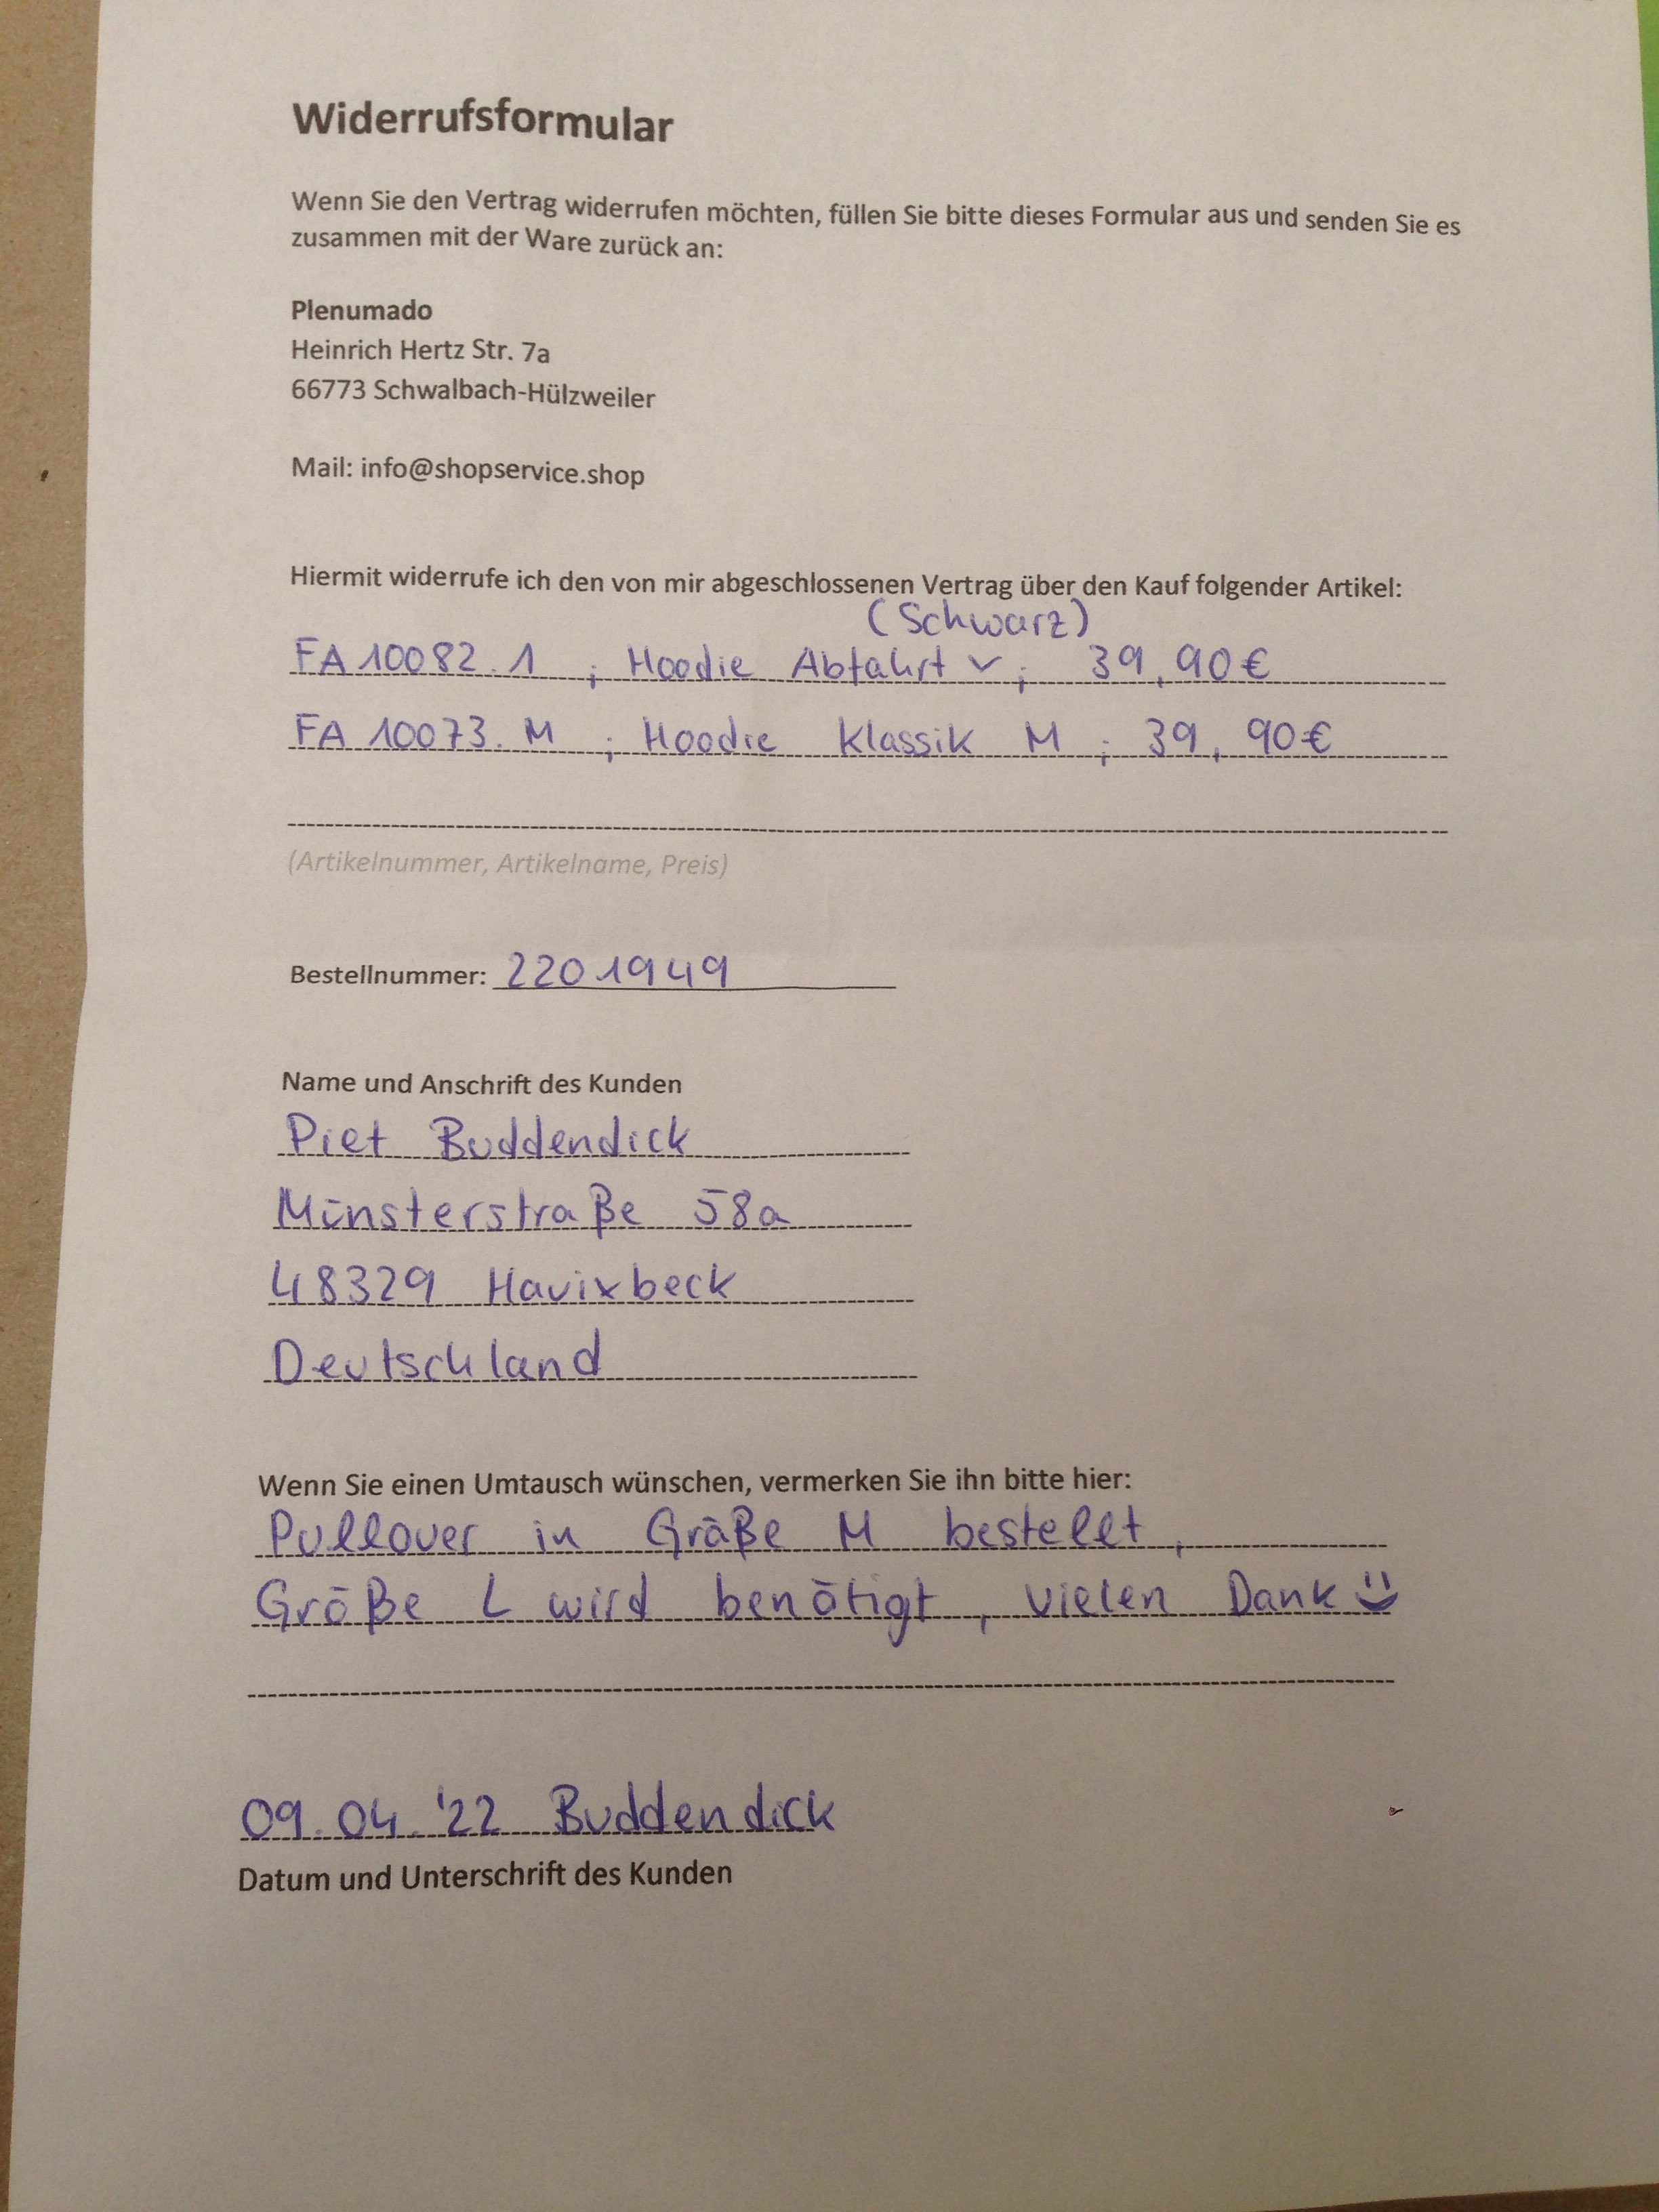 Widerrufsformular
Wenn Sie den Vertrag widerrufen möchten, füllen Sie bitte dieses Formular aus und senden Sie es
zusammen mit der Ware zurück an:
Plenumado
Heinrich Hertz Str. 7a
66773 Schwalbach-Hülzweiler
Mail: info@shopservice.shop
Hiermit widerrufe ich den von mir abgeschlossenen Vertrag über den Kauf folgender Artikel:
(Schwarz)
FA10082.1 ; Hoodie Abfahrt ; 39,90€
FA 10073.M ; Hoodie Klassik M ; 39,90€
(Artikelnummer, Artikelname, Preis)
Bestellnummer: 2201949
Name und Anschrift des Kunden
Piet Buddendick
Münsterstraße 58a
48329 Havixbeck
Deutschland
Wenn Sie einen Umtausch wünschen, vermerken Sie ihn bitte hier:
Pullover in Größe M bestellt,
Größe L wird benötigt, vielen Dank
09.04.'22 Buddendick
Datum und Unterschrift des Kunden